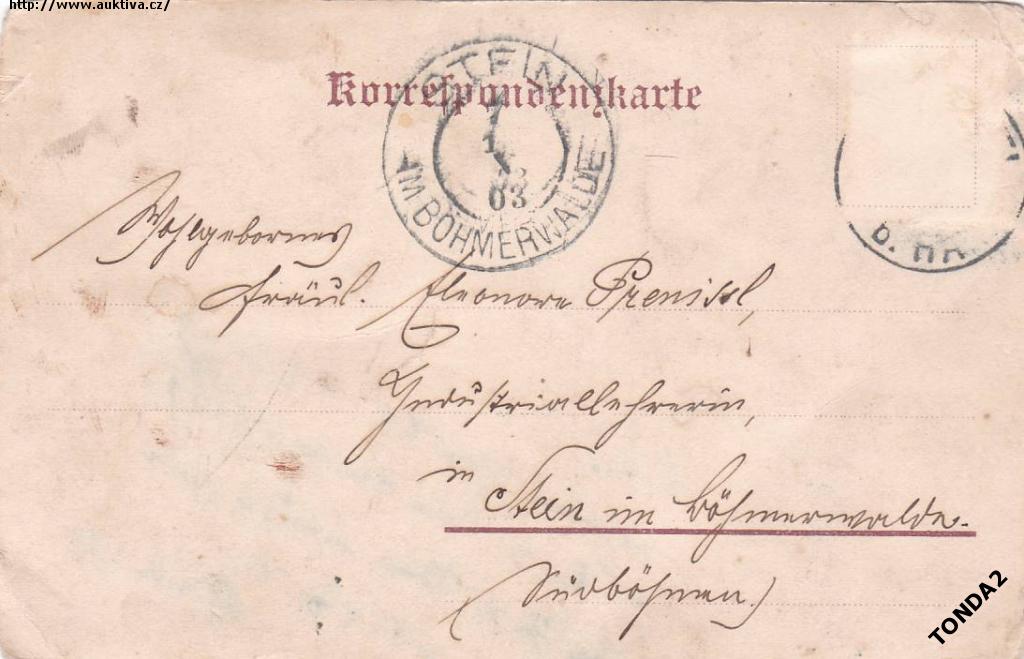 http://www.auktiva.cz/
Korrespondenzkarte
STEIN
1
03
IM BÖHMERWALDE
Wohlgebornes
Fräul. Eleonore Prenissl,
Industriallehrerin,
in
Stein im Böhmerwalde.
Südböhmen)
TONDA2